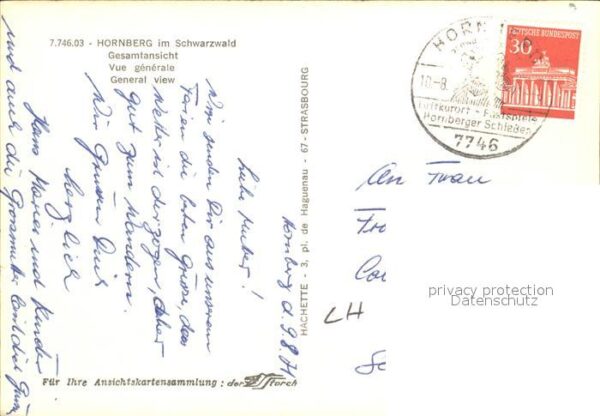 7.746.03 - HORNBERG im Schwarzwald
Gesamtansicht
Vue générale
General view
Hornberg d. 9.8.71
Liebe Mutter!
Wir senden Dir aus unseren
Ferien die besten Grüsse, das
Wetter ist
gut zum Wandern.
Wir Grüssen Dich
herzlich
Hans und Kinder
und auch die Grossmutter
HACHETTE - 3, pl. de Haguenau - 67 - STRASBOURG
HORN
10.-8.
Luftkurort
Hornberger Schießen
7746
DEUTSCHE BUNDESPOST
30
An Frau
LH
privacy protection
Datenschutz
Für Ihre Ansichtskartensammlung: der Storch